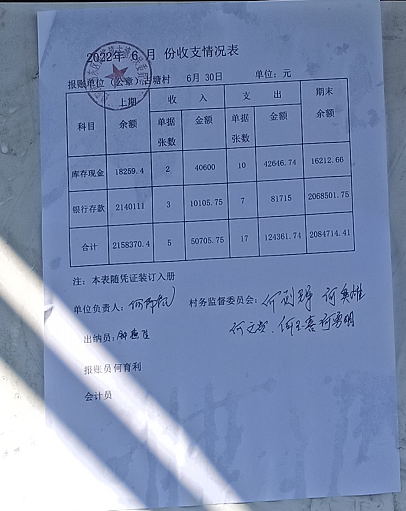 2022年 6 月 份收支情况表
报账单位（公章）占塘村 6月 30日 单位：元
科目 上期余额 收入 支出 期末余额
单据张数 金额 单据张数 金额
库存现金 18259.4 2 40600 10 42646.74 16212.66
银行存款 2140111 3 10105.75 7 81715 2068501.75
合计 2158370.4 5 50705.75 17 124361.74 2084714.41
注：本表随凭证装订入册
单位负责人： 村务监督委员会：
出纳员：
报账员何育利
会计员